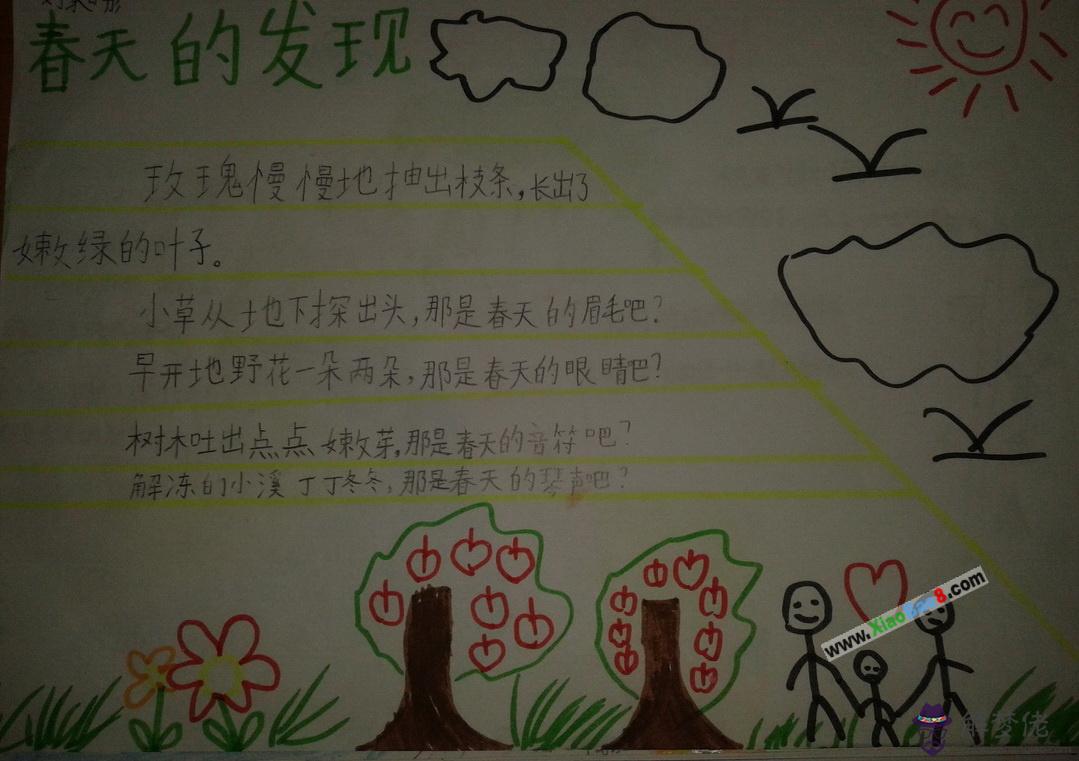 春天的发现
玫瑰慢慢地抽出枝条,长出了
嫩绿的叶子。
小草从地下探出头,那是春天的眉毛吧?
早开地野花一朵两朵,那是春天的眼睛吧?
树木吐出点点嫩芽,那是春天的音符吧?
解冻的小溪丁丁冬冬,那是春天的琴声吧?
www.Xiao 8.com
解梦佬